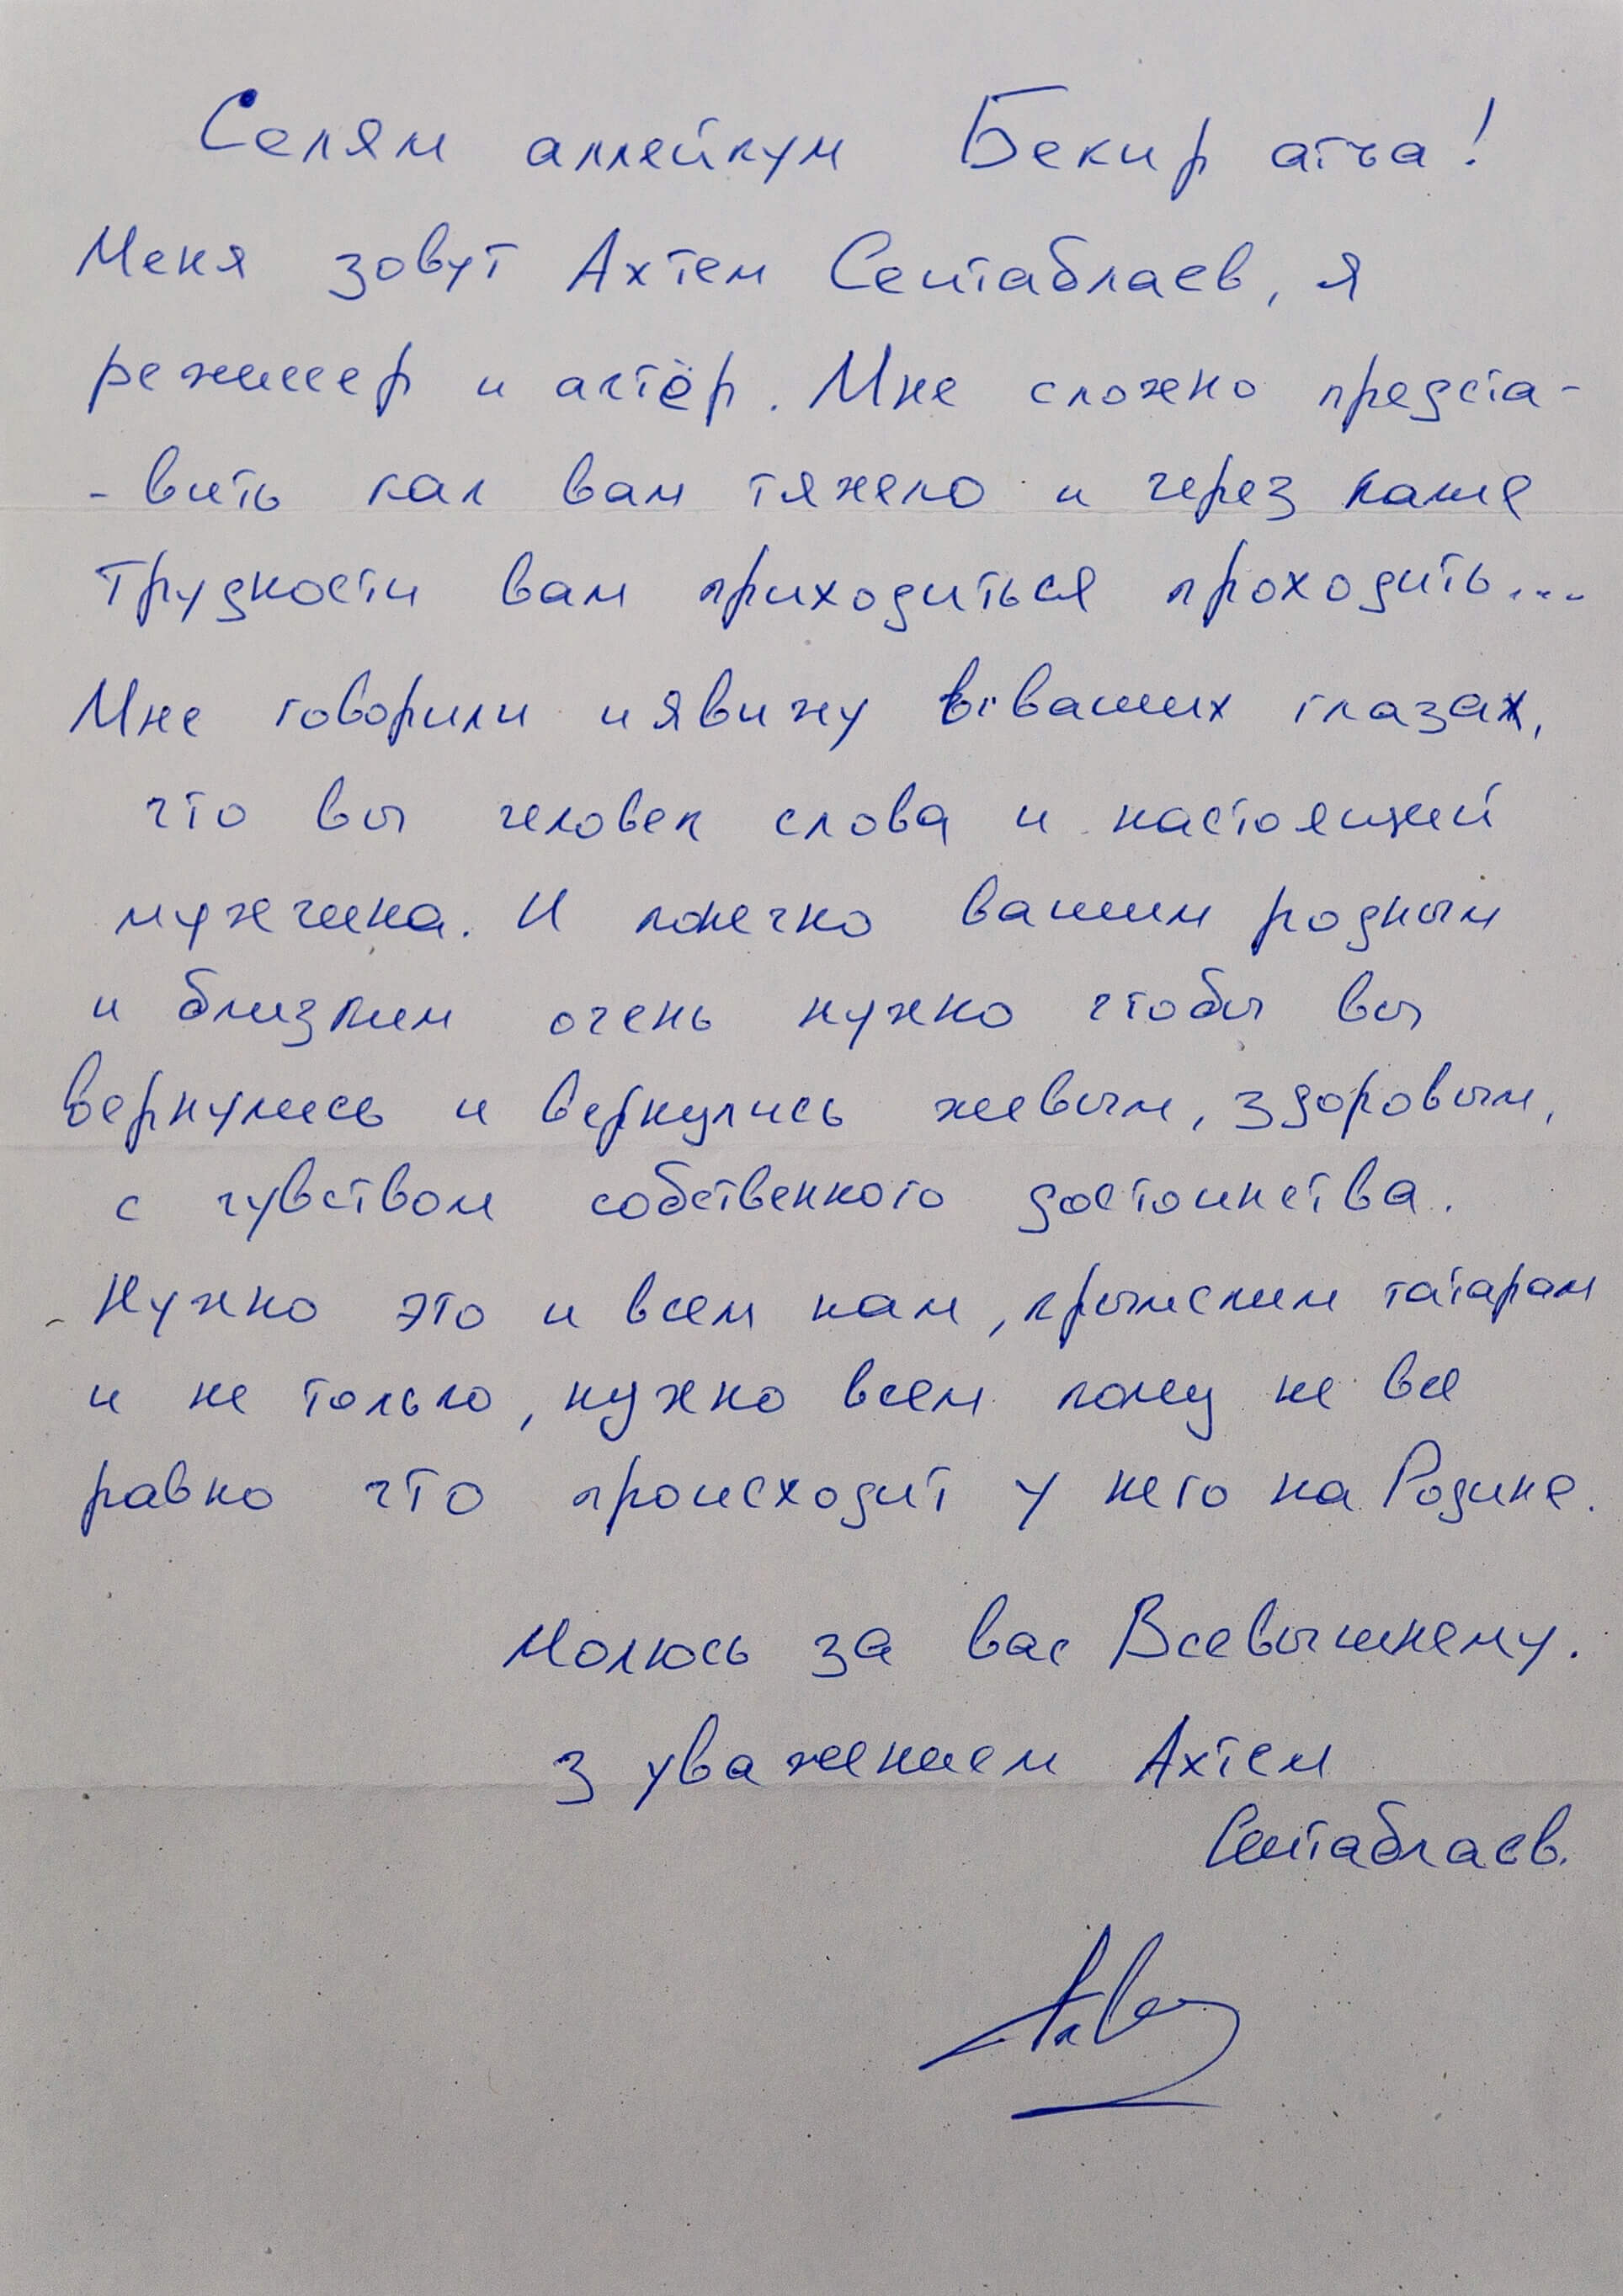 Селям аллейкум Бекир атъа!
Меня зовут Ахтем Сеитаблаев, я
режиссер и актёр. Мне сложно предста-
- вить как вам тяжело и через какие
трудности вам приходиться проходить...
Мне говорили и я вижу в ваших глазах,
что вы человек слова и настоящий
мужчина. И конечно вашим родным
и близким очень нужно чтобы вы
вернулись и вернулись живым, здоровым,
с чувством собственного достоинства.
Нужно это и всем нам, крымским татарам
и не только, нужно всем кому не все
равно что происходит у него на Родине.
Молюсь за вас Всевышнему.
З уважением Ахтем
Сеитаблаев.